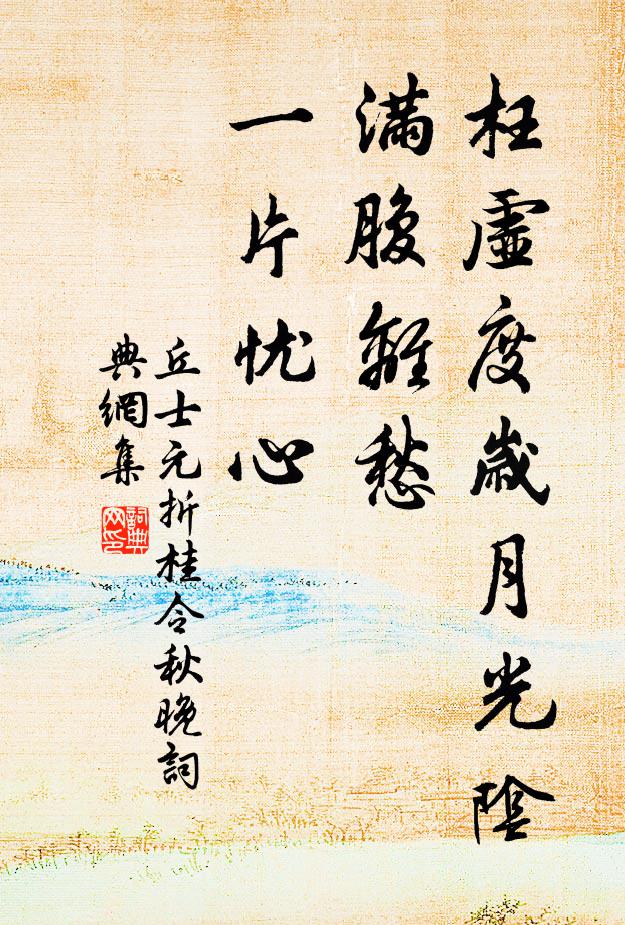 枉虛度歲月光陰
滿腹離愁
一片忧心
丘士元折桂令秋晚詞
典網集
詞典
网印